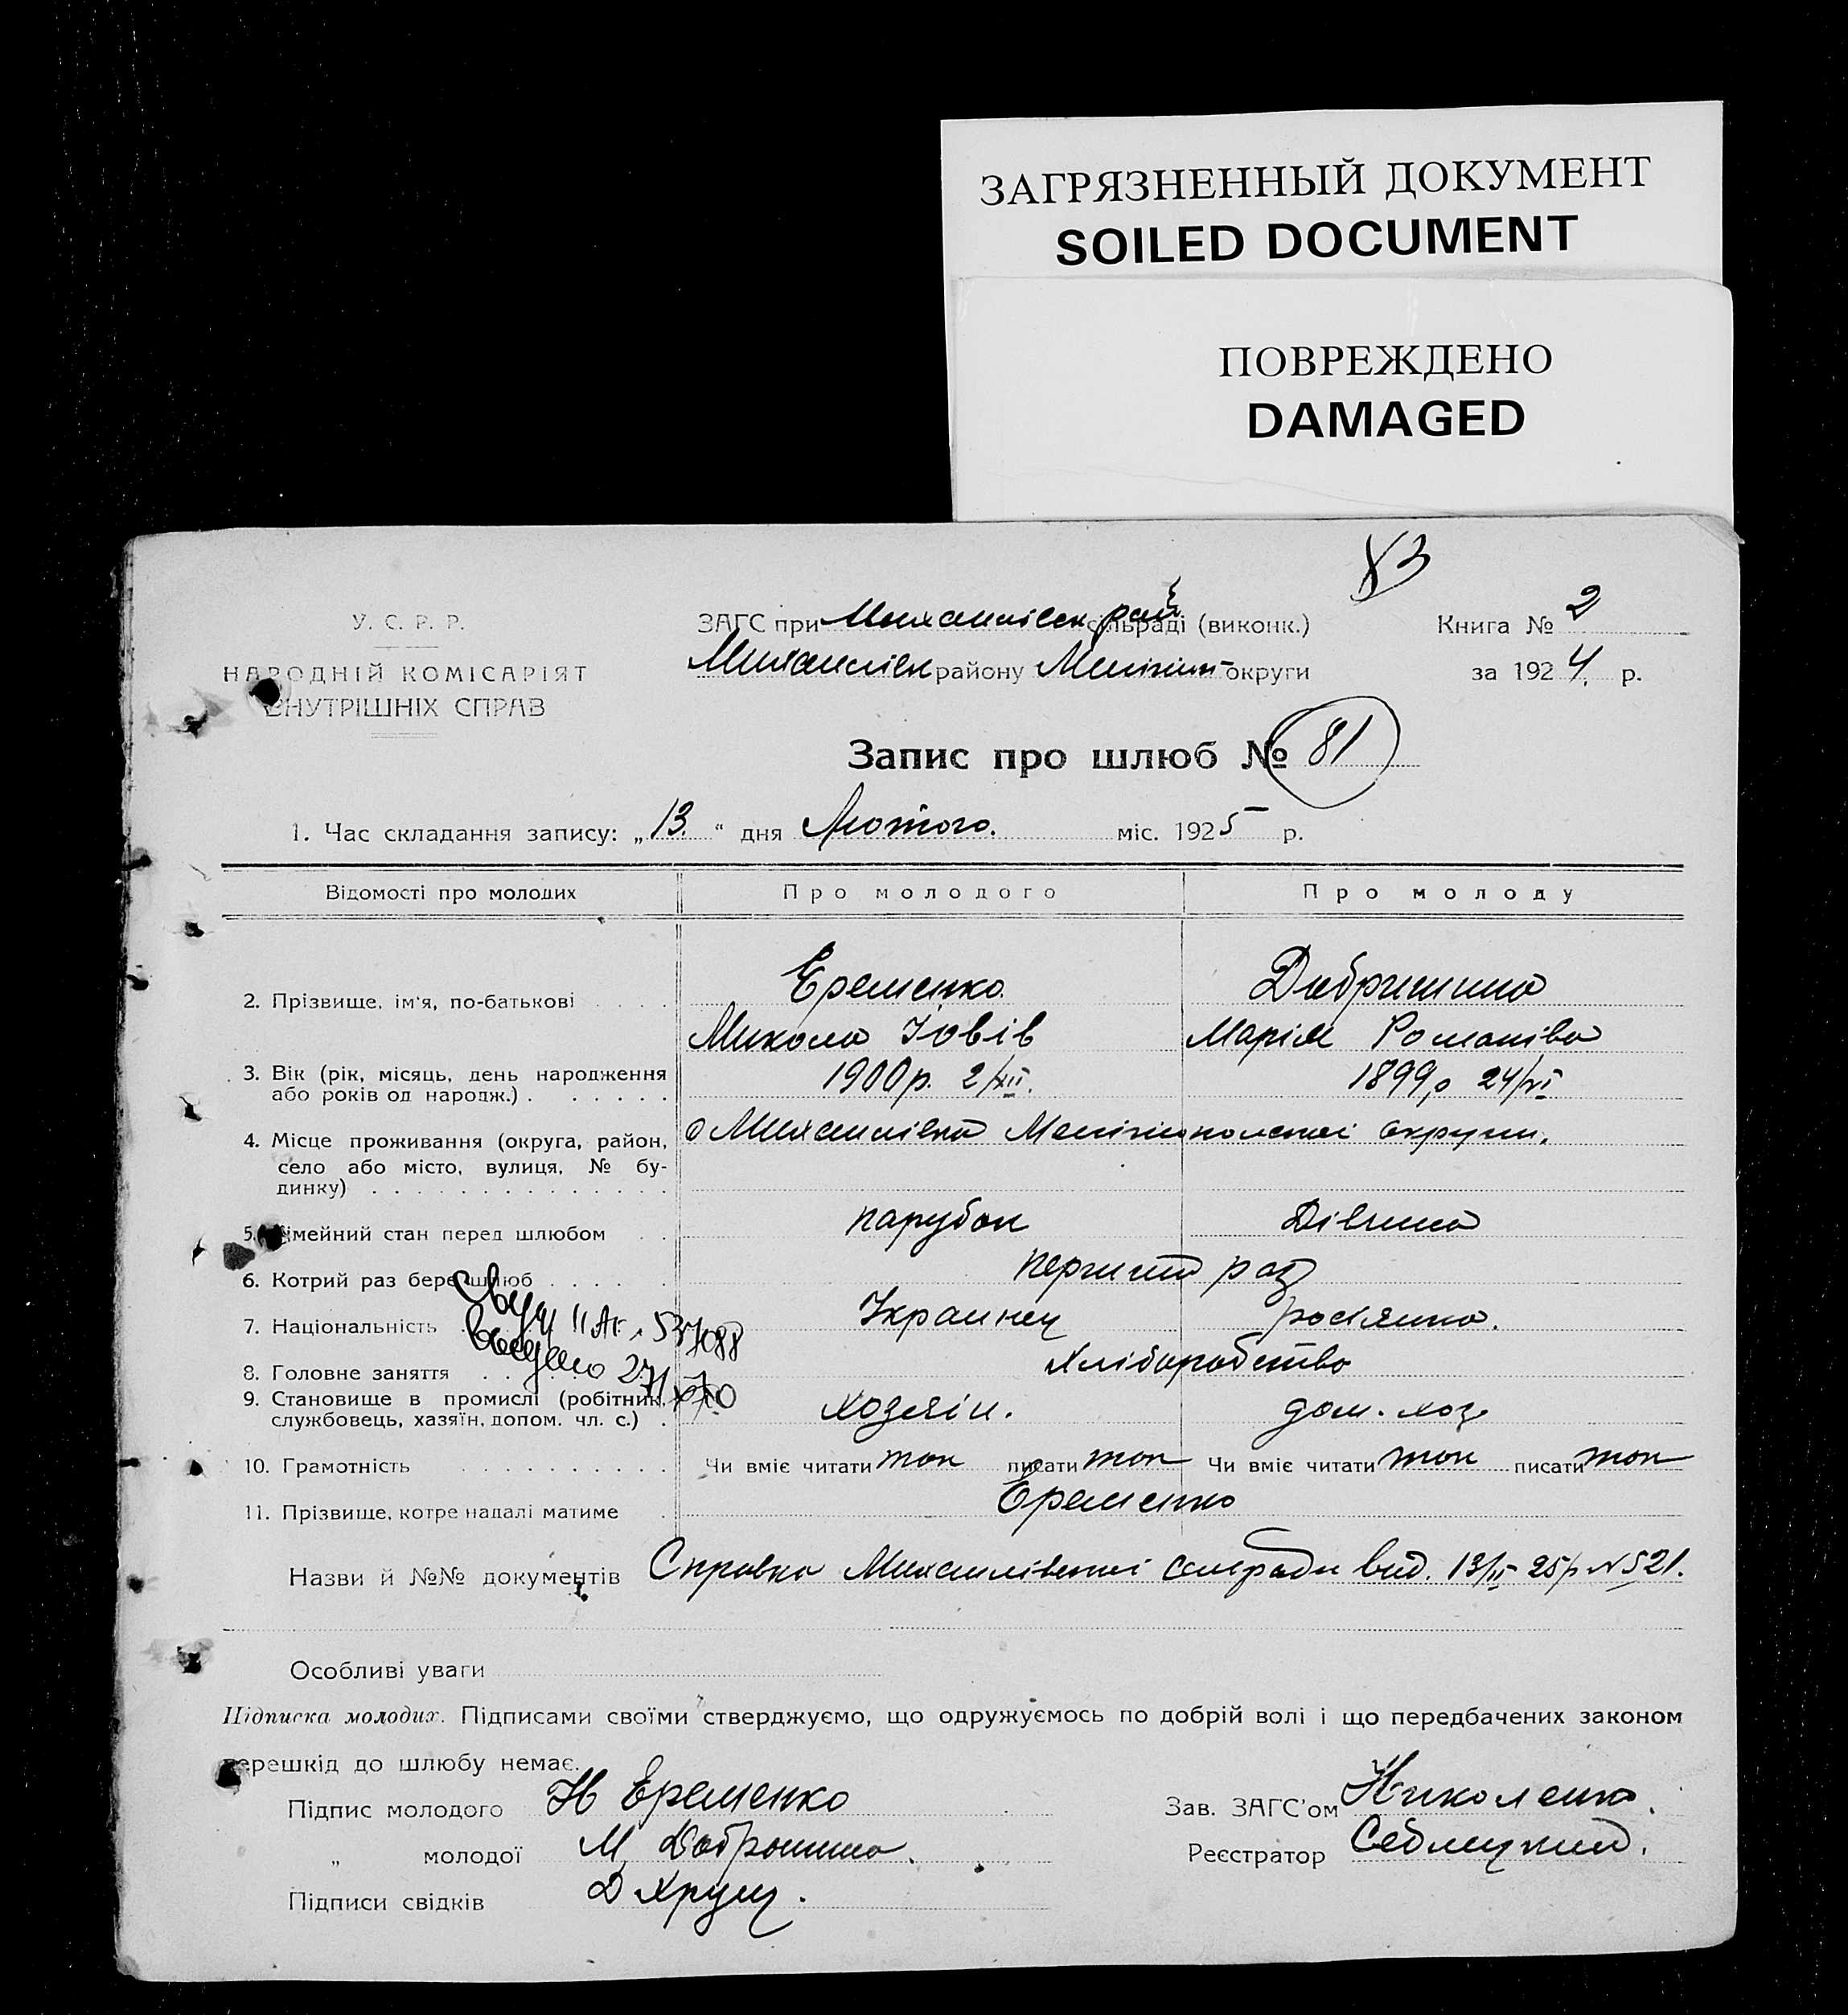 ЗАГРЯЗНЕННЫЙ ДОКУМЕНТ
SOILED DOCUMENT
ПОВРЕЖДЕНО
DAMAGED
83
У. С. Р. Р.
НАРОДНІЙ КОМІСАРІЯТ
ВНУТРІШНІХ СПРАВ
ЗАГС при Михайлівськ рай сільраді (виконк.)
Михайлівськ району Меліт округи
Книга № 2
за 1924. р.
Запис про шлюб № 81
1. Час складання запису: „13." дня Лютого. міс. 1925 р.
Відомості про молодих
Про молодого
Про молоду
2. Прізвище, ім'я, по-батькові . . . .
Еременко
Добришина
Микола Іовів
Марія Романіва
3. Вік (рік, місяць, день народження або років од народж.) . . . . . .
1900р. 2/XII.
1899р 24/VI
4. Місце проживання (округа, район, село або місто, вулиця, № будинку) . . . . . . . . . . . . . .
с Михайлівка Мелітопольскої округи.
5. Сімейний стан перед шлюбом . .
парубок
Дівчина
6. Котрий раз бере шлюб . . . . .
перший раз
7. Національність
Украинец
росіянка.
8. Головне заняття . .
Хліборобство
9. Становище в промислі (робітник, службовець, хазяїн, допом. чл. с.) .
хозяін.
дом. хоз
10. Грамотність . . . . . . . . .
Чи вміє читати так писати так
Чи вміє читати так писати так
11. Прізвище, котре надалі матиме .
Еременко
Назви й №№ документів Справка Михайлівскої сільради вид. 13/II 25р №521.
Особливі уваги
Підписка молодих. Підписами своїми стверджуємо, що одружуємось по добрій волі і що передбачених законом
перешкід до шлюбу немає.
Підпис молодого Н Еременко
Зав. ЗАГС'ом
„ молодої М. Добришина.
Реєстратор
Підписи свідків Д Хрущ.